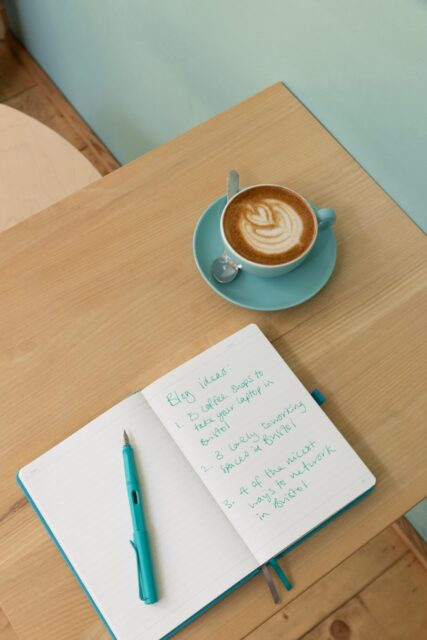 Blog ideas:
1. 5 coffee shops to
take your laptop in
Bristol
2. 3 lovely coworking
spaces in Bristol
3. 4 of the nicest
ways to network
in Bristol